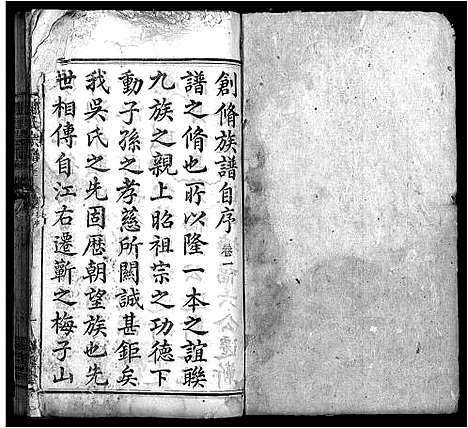 創脩族譜自序 卷一
譜之脩也所以隆一本之誼聯
九族之親上昭祖宗之功德下
動子孫之孝慈所關誠甚鉅矣
我吳氏之先固歷朝望族也先
世相傳自江右遷蘄之梅子山